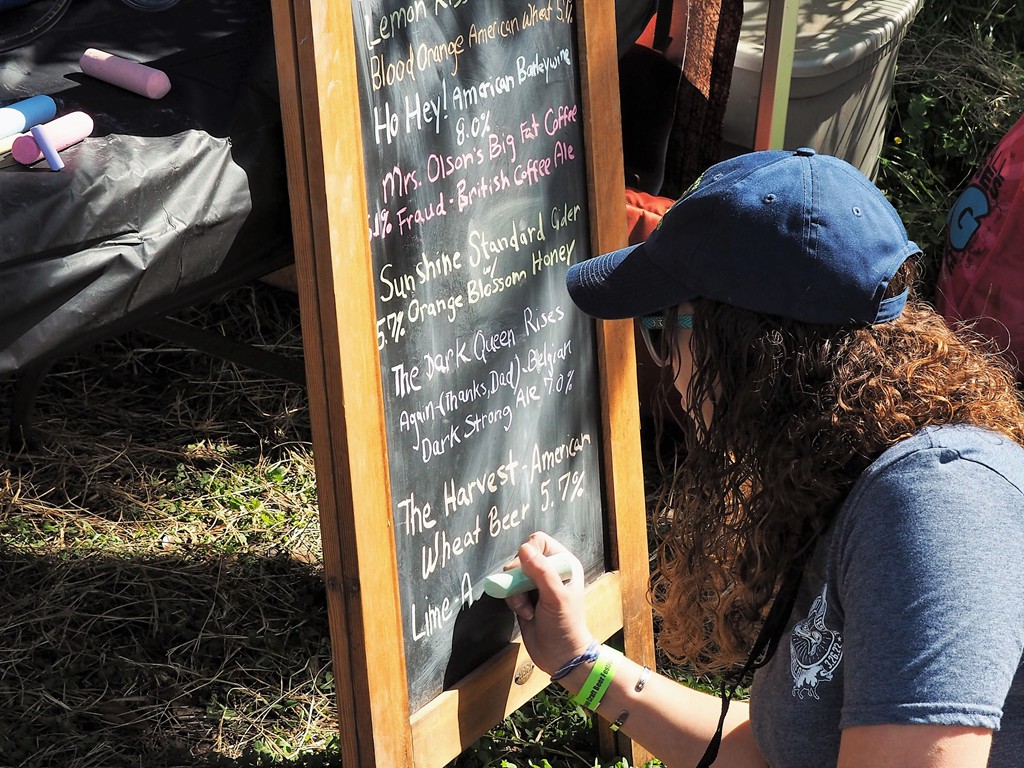 Lemon
Blood Orange American Wheat
Ho Hey! American Barleywine
8.0%
Mrs. Olson's Big Fat Coffee
Fraud - British Coffee Ale
Sunshine Standard Cider
w/
5.7% Orange Blossom Honey
The Dark Queen Rises
Again-(Thanks, Dad)-Belgian
Dark Strong Ale 7.0%
The Harvest - American
Wheat Beer 5.7%
Lime-A
G